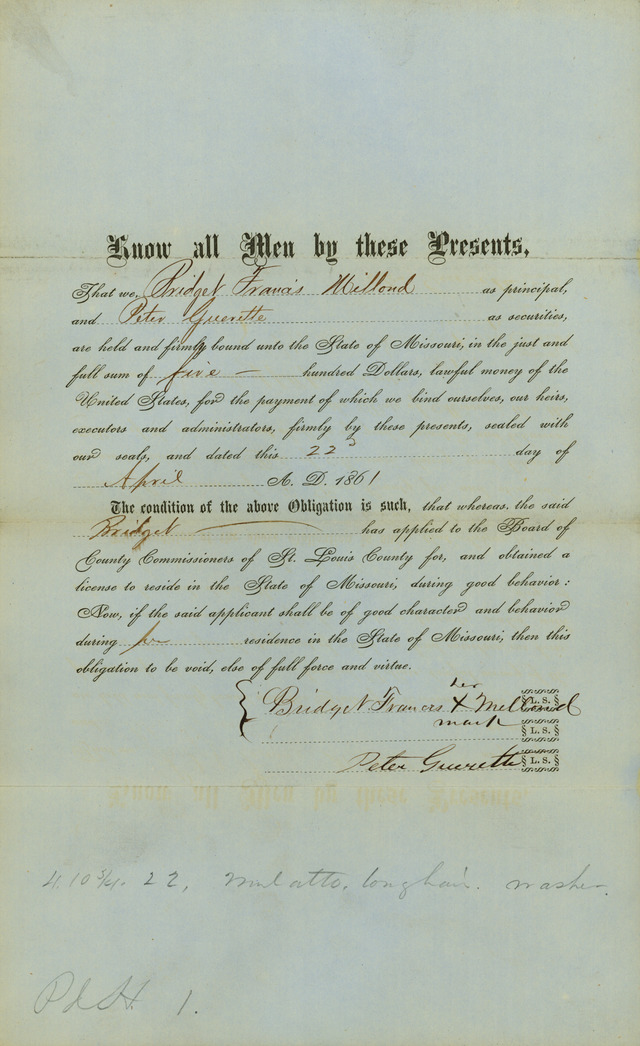 Know all Men by these Presents,
That we, Bridget Francis Millond as principal,
and Peter Guerette as securities,
are held and firmly bound unto the State of Missouri, in the just and
full sum of five — hundred Dollars, lawful money of the
United States, for the payment of which we bind ourselves, our heirs,
executors and administrators, firmly by these presents, sealed with
our seals, and dated this 22d day of
April A. D. 1861
The condition of the above Obligation is such, that whereas, the said
Bridget has applied to the Board of
County Commissioners of St. Louis County for, and obtained a
license to reside in the State of Missouri, during good behavior:
Now, if the said applicant shall be of good character and behavior
during her residence in the State of Missouri, then this
obligation to be void, else of full force and virtue.
her
Bridget Francis X Millond L. S.
mark L. S.
Peter Guerette L. S.
4.10 3/4. 22, mulatto. long hair. washer.
Pd 1.